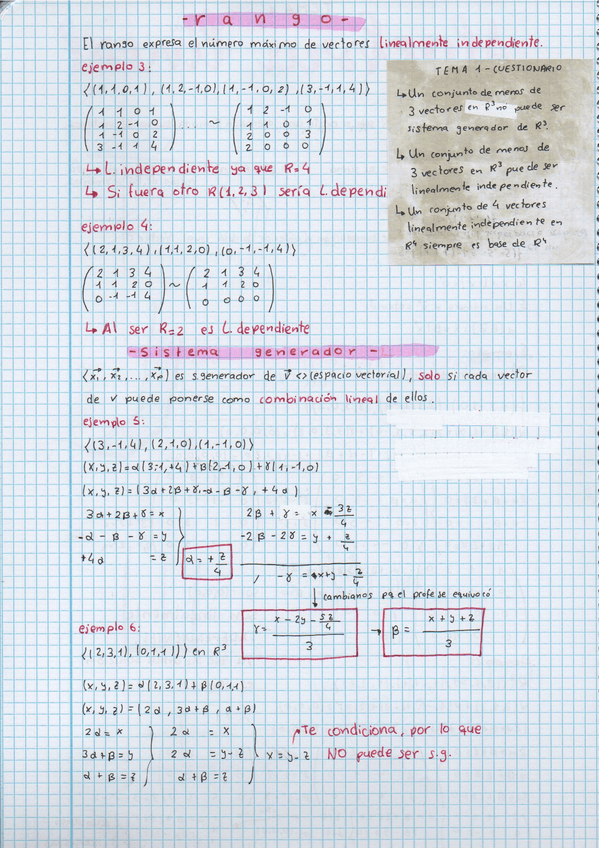 - r a n g o -
El rango expresa el número máximo de vectores linealmente independiente.
ejemplo 3:
{(1,1,0,1), (1,2,-1,0), (1,-1,0,2), (3,-1,1,4)}
1 1 0 1
1 2 -1 0
1 -1 0 2
3 -1 1 4
... ~
1 2 -1 0
1 1 0 1
2 0 0 3
2 0 0 0
↳ L. independiente ya que R=4
↳ Si fuera otro R(1,2,3) sería L. dependi
TEMA 1 - CUESTIONARIO
↳ Un conjunto de menos de
3 vectores en R³ no puede ser
sistema generador de R³.
↳ Un conjunto de menos de
3 vectores en R³ puede ser
linealmente independiente.
↳ Un conjunto de 4 vectores
linealmente independiente en
R⁴ siempre es base de R⁴
ejemplo 4:
{(2,1,3,4), (1,1,2,0), (0,-1,-1,4)}
2 1 3 4
1 1 2 0
0 -1 -1 4
~
2 1 3 4
1 1 2 0
0 0 0 0
↳ Al ser R=2 es L. dependiente
- Sistema generador -
{x₁, x₂, ..., xₚ} es s.generador de V <> (espacio vectorial), solo si cada vector
de V puede ponerse como combinación lineal de ellos.
ejemplo 5:
{(3,-1,4), (2,1,0), (1,-1,0)}
(x,y,z) = α(3,-1,+4) + β(2,-1,0) + γ(1,-1,0)
(x,y,z) = (3α+2β+γ, -α-β-γ, +4α)
3α+2β+γ = x
-α - β - γ = y
+4α = z
α = + z/4
2β + γ = x - 3z/4
-2β - 2γ = y + z/4
, -γ = x+y - z/4
↓ cambianos pq el profe se equivocó
γ = (x - 2y - 5z/4)/3 → β = (x + y + z)/3
ejemplo 6:
{(2,3,1), (0,1,1)} en R³
(x,y,z) = α(2,3,1) + β(0,1,1)
(x,y,z) = (2α, 3α+β, α+β)
2α = x
3α+β = y
α + β = z
2α = x
2α = y-z
α + β = z
x = y-z
↗ Te condiciona, por lo que
NO puede ser s.g.